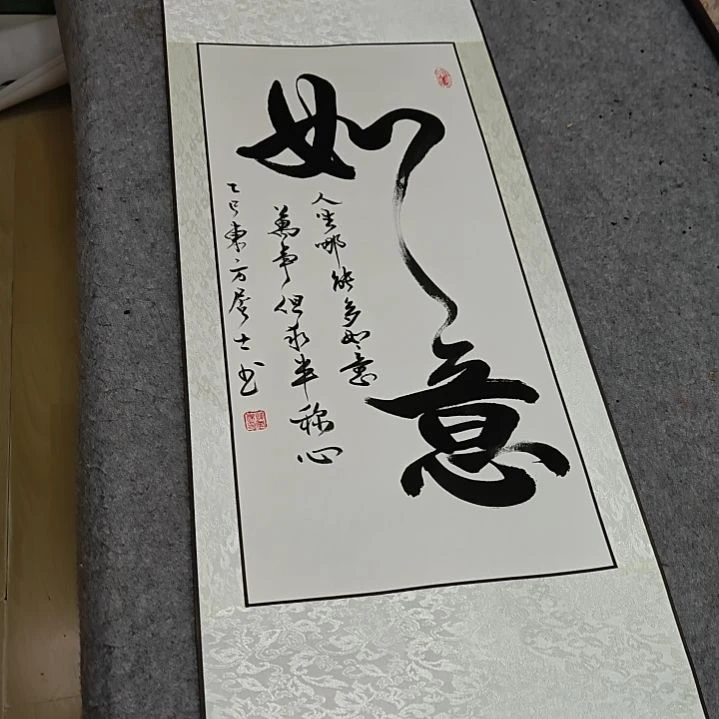 如意
人生哪能多如意
萬事但求半称心
乙巳東方居士书